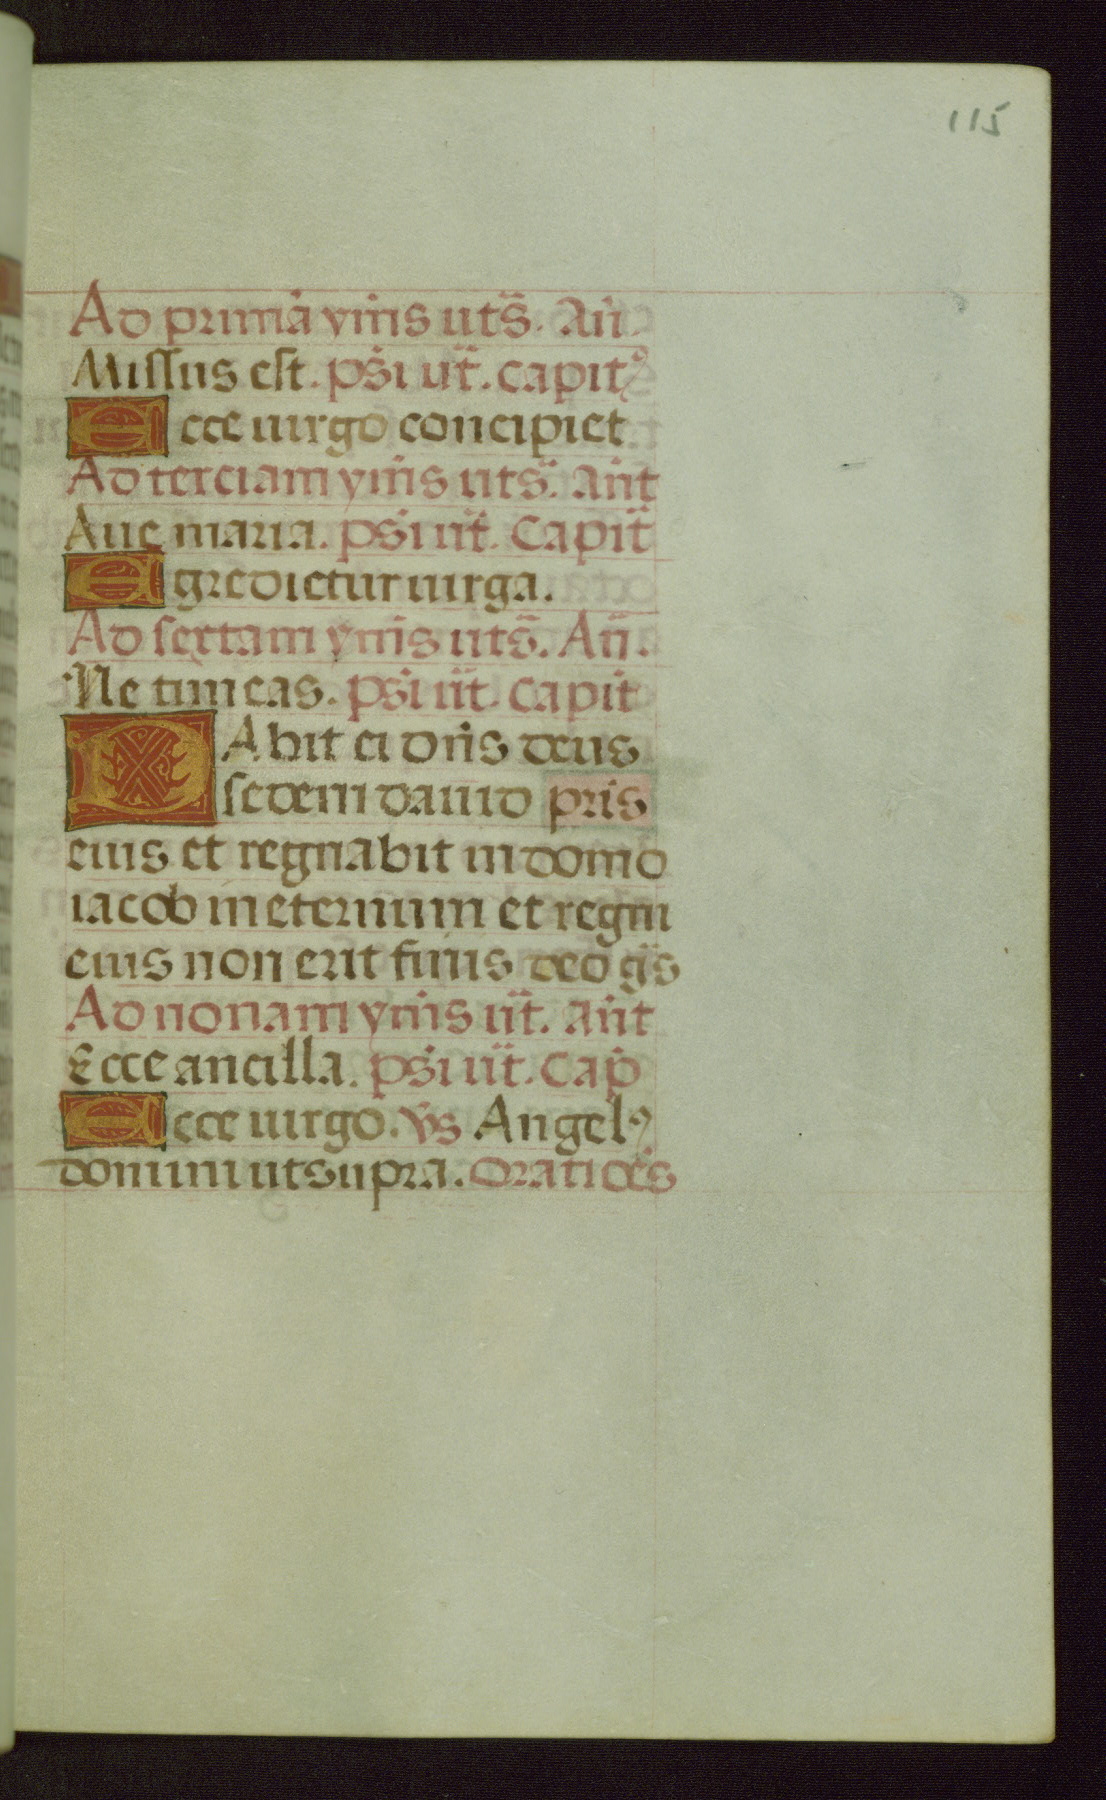 115
Ad primā ymīs uts̄. Añ.
Missus est. ps̄i ut̄. capit⁹
Ecce uirgo concipiet
Ad terciam ymīs uts̄. añt
Aue maria. ps̄i ut̄. Capit̄
Egredietur uirga.
Ad sextam ymīs uts̄. Añ.
Ne timeas. ps̄i ut̄. capit
DAbit ei dn̄s deus
sedem dauid pr̄is
eius et regnabit in domo
iacob in eternum et regni
eius non erit finis deo gr̄s
Ad nonam ymīs ut̄. añt
Ecce ancilla. ps̄i ut̄. Cap̄
Ecce uirgo. v̄s Angel⁹
domini ut supra. Oratiōes